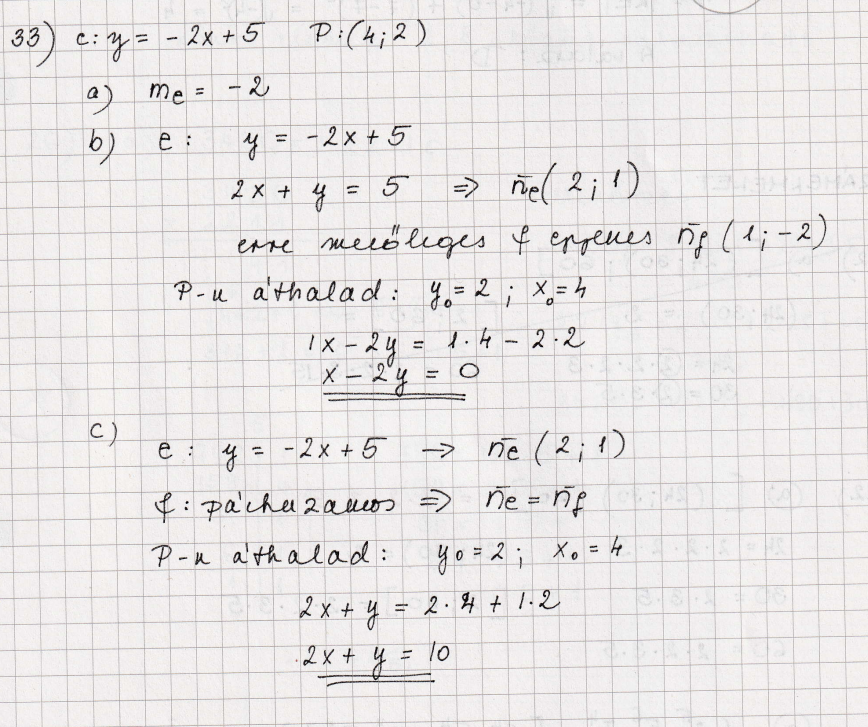 33) e: y = -2x+5 P:(4;2)
a) me = -2
b) e: y = -2x+5
2x + y = 5 => n̄e(2;1)
erre merőleges f egyenes n̄f (1;-2)
P-n áthalad: y₀=2 ; x₀=4
1x - 2y = 1·4 - 2·2
x - 2y = 0
c)
e: y = -2x+5 → n̄e (2;1)
f: párhuzamos => n̄e = n̄f
P-n áthalad: y₀=2; x₀=4
2x + y = 2·4 + 1·2
2x + y = 10